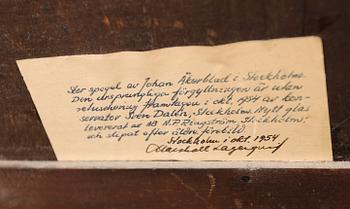 Stor spegel av Johan Åkerblad i Stockholm.
Den ursprungliga förgyllningen är utan
retuschering framtagen i okt. 1954 av kon-
servator Sven Dalén, Stockholm. Nytt glas
levererat av AB N.P. Ringström Stockholm,
och slipat efter äldre förebild.
Stockholm i okt. 1954
Marshall Lagerquist